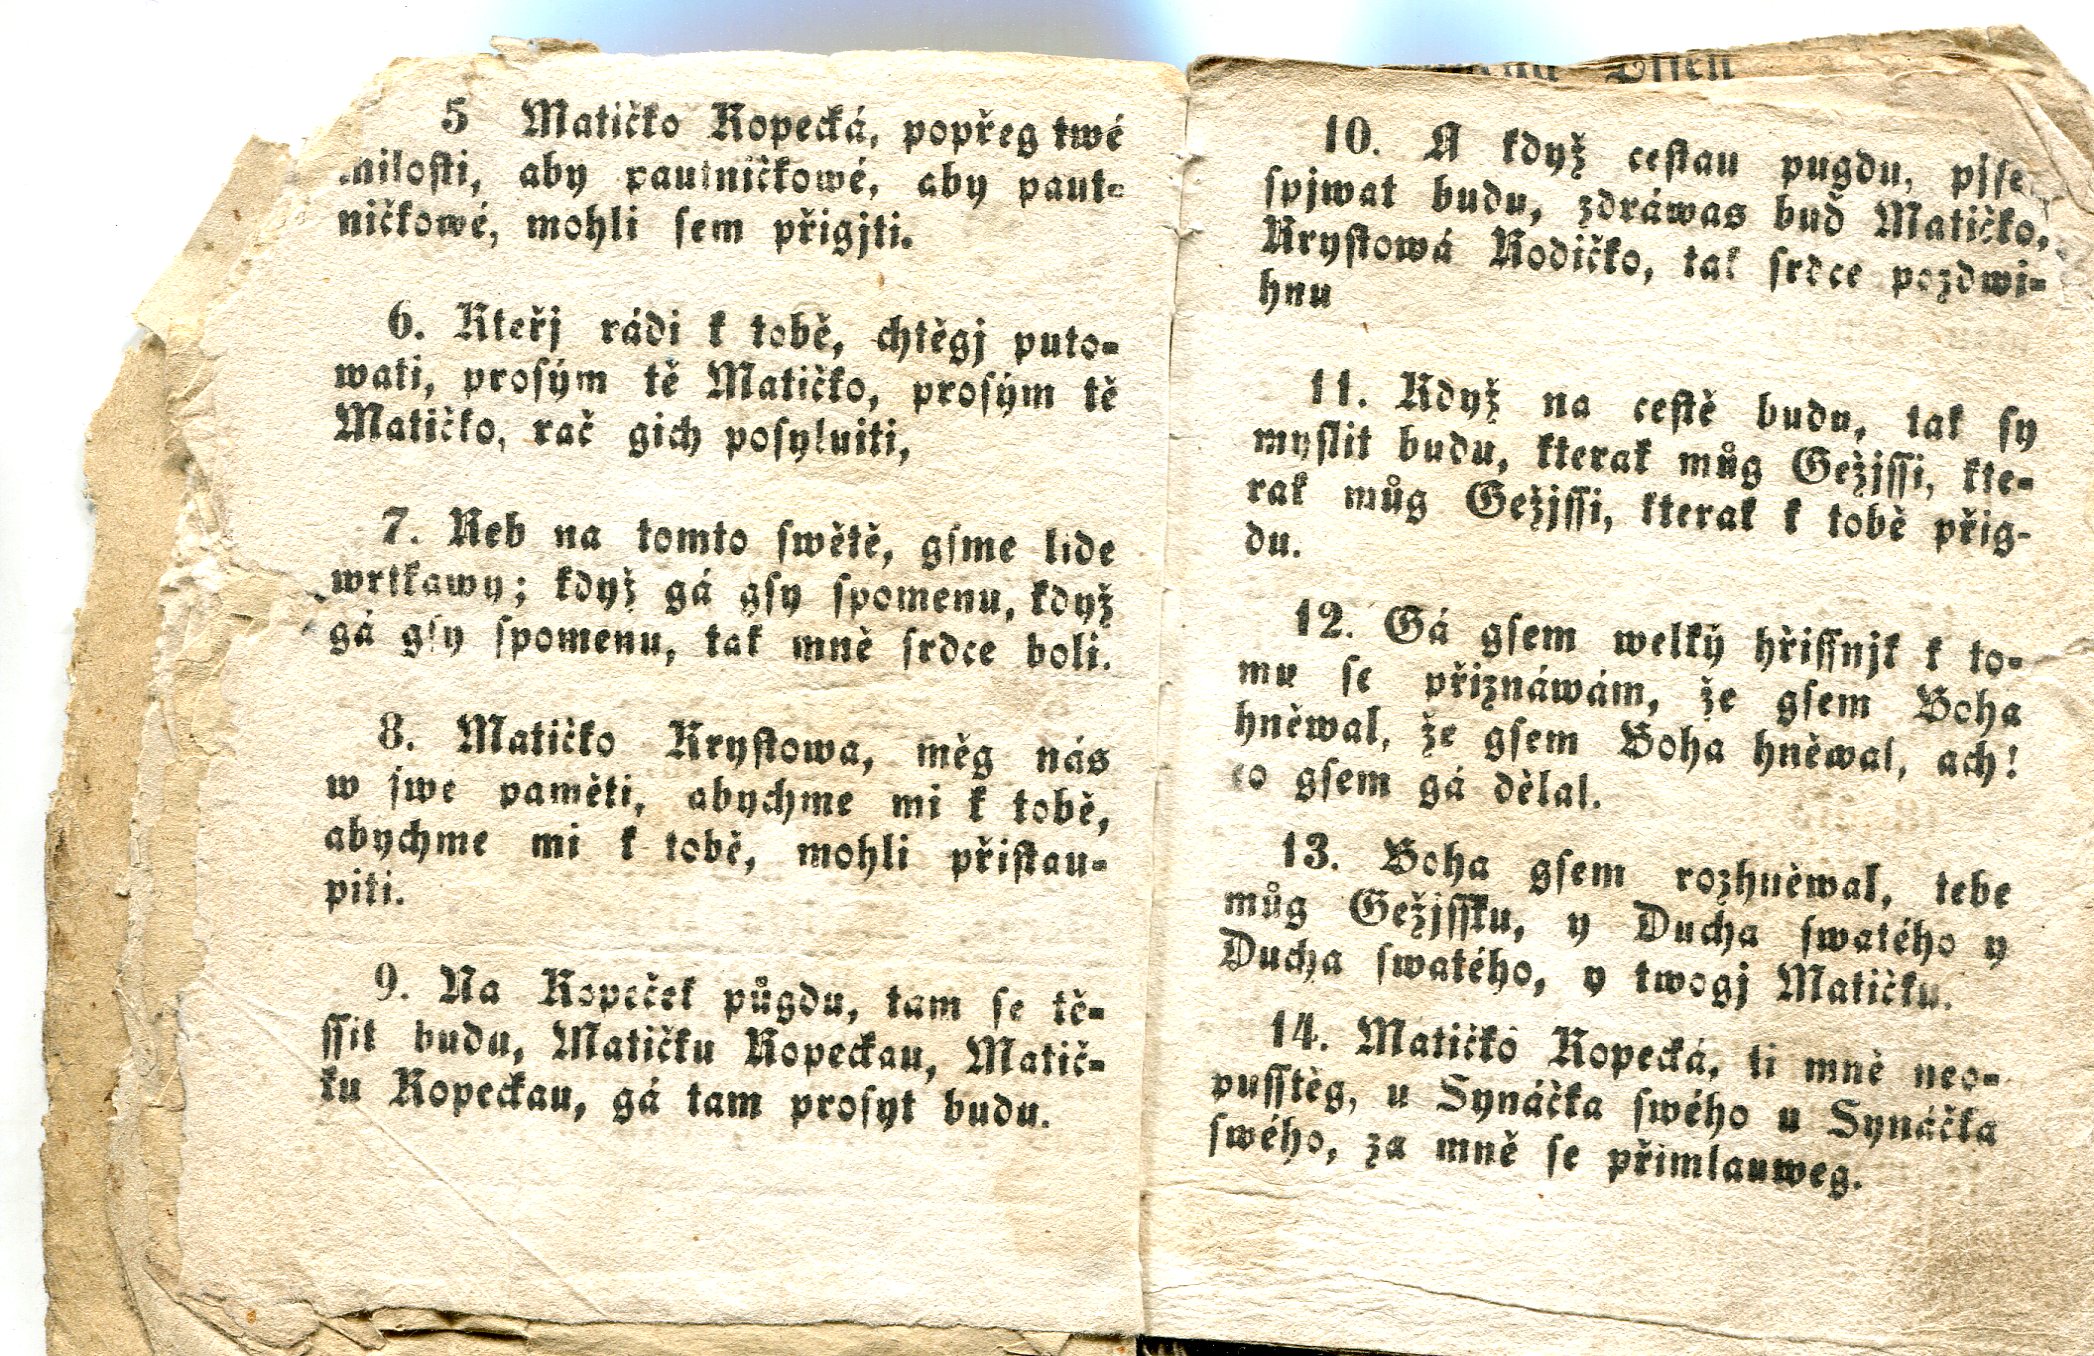 5 Matičko Kopecká, popřeg twé
milosti, aby pautničkowé, aby paut=
ničkowé, mohli sem přigjti.
6. Kteřj rádi k tobě, chtěgj puto=
wati, prosým tě Matičko, prosým tě
Matičko, rač gich posyluiti,
7. Neb na tomto swětě, gsme lide
wrtkawy; když gá gsy spomenu, když
gá gsy spomenu, tak mně srdce boli.
8. Matičko Krystowa, měg nás
w swe paměti, abychme mi k tobě,
abychme mi k tobě, mohli přistau=
piti.
9. Na Kopeček půgdu, tam se tě=
ssit budu, Matičku Kopeckau, Matič=
ku Kopeckau, gá tam prosyt budu.
10. A když cestau pugdu,
spjwat budu, zdráwas buď Matičko,
Krystowá Rodičko, tak srdce pozdwi=
hnu
11. Když na cestě budu, tak sy
myslit budu, kterak můg Gežjssi, kte=
rak můg Gežjssi, kterak k tobě přig=
du.
12. Gá gsem welký hřissnjk k to=
mu se přiznáwám, že gsem Boha
hněwal, že gsem Boha hněwal, ach!
co gsem gá dělal.
13. Boha gsem rozhněwal, tebe
můg Gežjssku, y Ducha swatého y
Ducha swatého, y twogj Matičku.
14. Matičko Kopecká, ti mně neo=
pusstěg, u Synáčka swého u Synáčka
swého, za mně se přimlauweg.